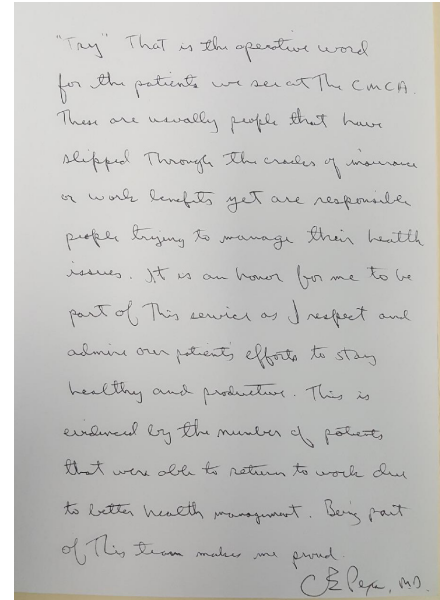 "Try" That is the operative word
for the patients we see at The CMCA.
These are usually people that have
slipped Through the cracks of insurance
or work benefits yet are responsible
people trying to manage their health
issues. It is an honor for me to be
part of This service as I respect and
admire our patients efforts to stay
healthy and productive. This is
evidenced by the number of patients
that were able to return to work due
to better health management. Being part
of This team makes me proud.
M.D.